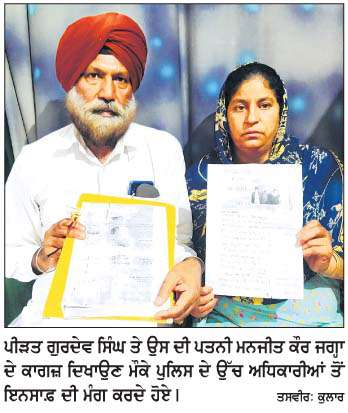 ਪੀੜਤ ਗੁਰਦੇਵ ਸਿੰਘ ਤੇ ਉਸ ਦੀ ਪਤਨੀ ਮਨਜੀਤ ਕੌਰ ਜਗ੍ਹਾ
ਦੇ ਕਾਗਜ਼ ਦਿਖਾਉਣ ਮੌਕੇ ਪੁਲਿਸ ਦੇ ਉੱਚ ਅਧਿਕਾਰੀਆਂ ਤੋਂ
ਇਨਸਾਫ਼ ਦੀ ਮੰਗ ਕਰਦੇ ਹੋਏ।
ਤਸਵੀਰ: ਕੁਲਾਰ